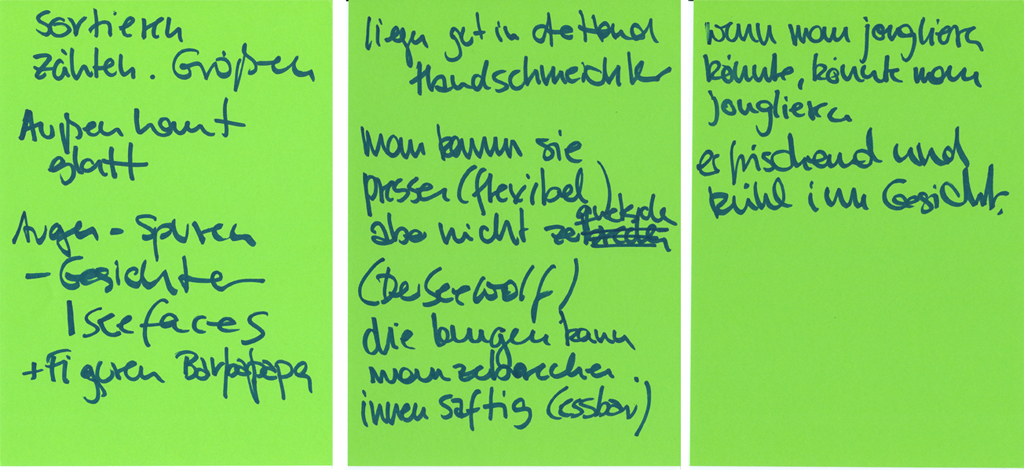 Sortieren
Zählen. Größen
Außenhaut
glatt
Augen - Spuren
- Gesichter
I see faces
+ Figuren Barbapapa
liegen gut in der Hand
Handschmeichler
man kann sie
pressen (flexibel)
aber nicht zerquetschen
(Der Seewolf)
die Jungen kann
man zerbrechen.
innen saftig (essbar)
wenn man jonglieren
könnte, könnte man
jonglieren
erfrischend und
kühl im Gesicht.